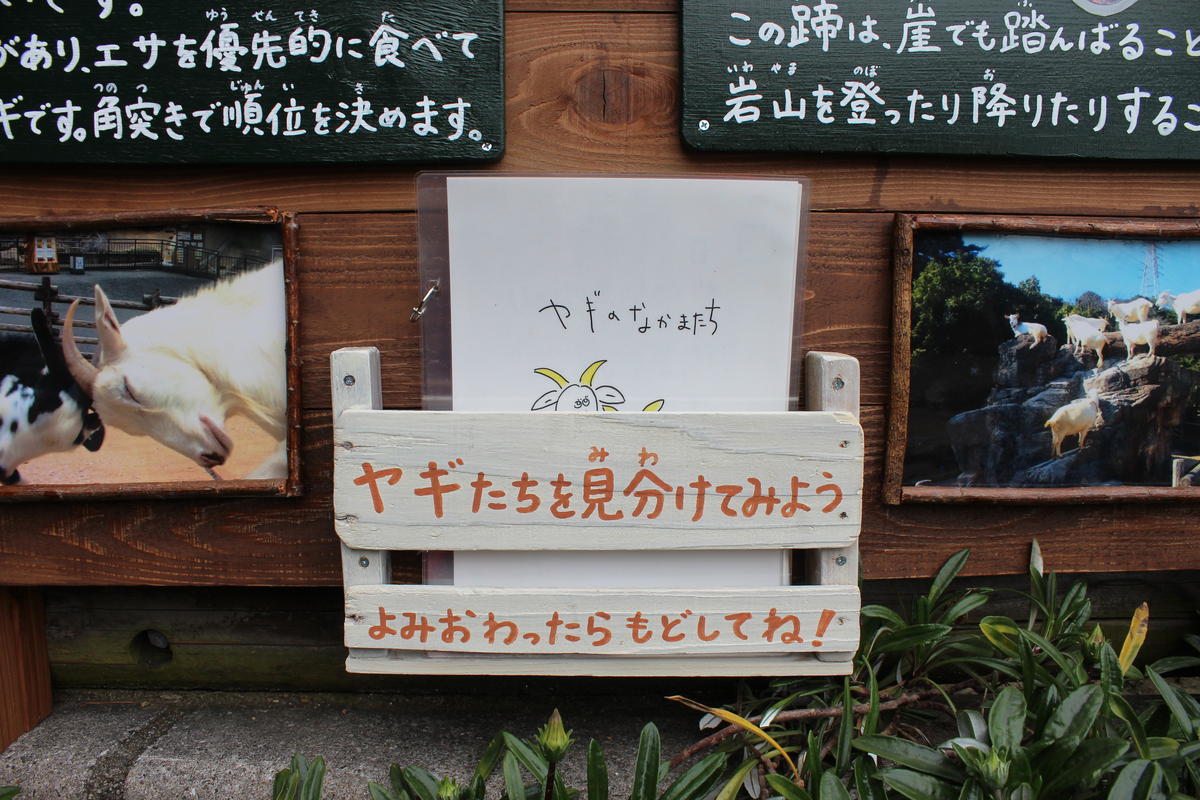 です。
があり、エサを優先的に食べて
ギです。角突きで順位を決めます。
この蹄は、崖でも踏んばること
岩山を登ったり降りたりするこ
ヤギのなかまたち
ヤギたちを見分けてみよう
よみおわったらもどしてね!